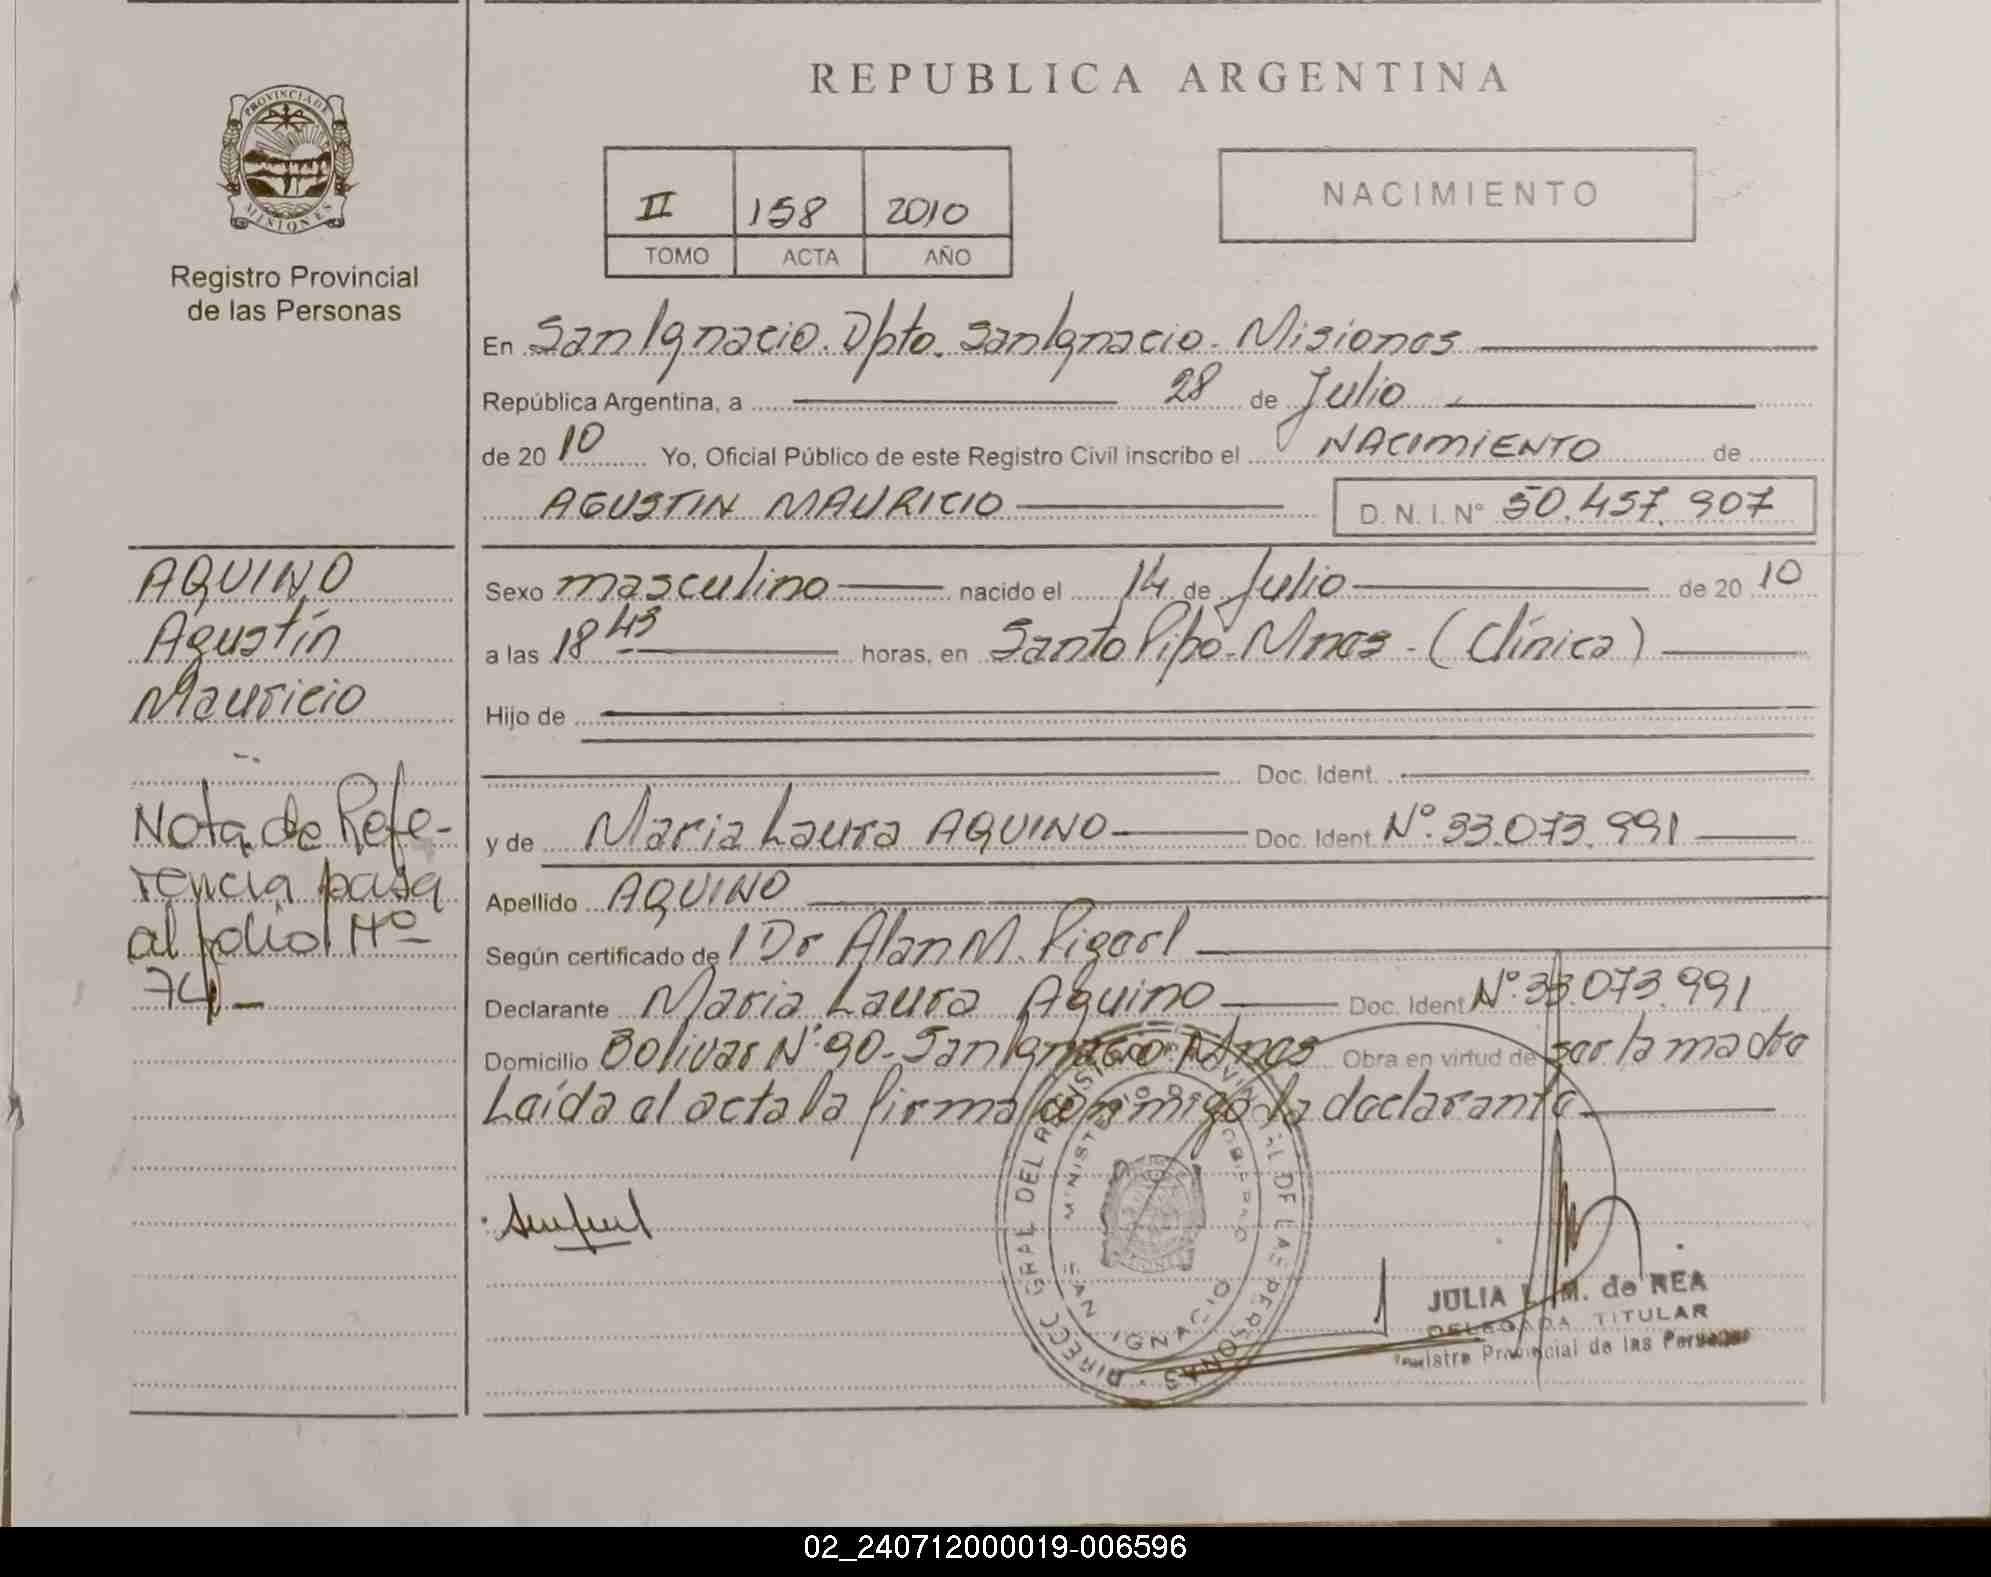 REPUBLICA ARGENTINA
PROVINCIA DE
MISIONES
Registro Provincial
de las Personas
II 158 2010
TOMO ACTA AÑO
NACIMIENTO
En San Ignacio. Dpto. San Ignacio. Misiones
República Argentina, a 28 de Julio
de 2010 Yo, Oficial Público de este Registro Civil inscribo el NACIMIENTO de
AGUSTIN MAURICIO D. N. I. N° 50.457.907
AQUINO
Agustín
Mauricio
Nota de Refe-
rencia pasa
al folio Nº
74
Sexo masculino nacido el 14 de Julio de 2010
a las 18 43 horas, en Santo Pipó - Mnes - (Clínica)
Hijo de
Doc. Ident.
y de Maria Laura AQUINO Doc. Ident. Nº. 33.073.991
Apellido AQUINO
Según certificado de l Dr Alan M.
Declarante Maria Laura Aquino Doc. Ident. Nº. 33.073.991
Domicilio Bolivar Nº 90 - San Ignacio - Mnes Obra en virtud de ser la madre
Leída el acta la firma conmigo la declarante
DIRECC. GRAL. DEL REGISTRO PROVINCIAL DE LAS PERSONAS
MINISTERIO DE GOBIERNO
SAN IGNACIO
JULIA L. M. de REA
DELEGADA TITULAR
Registro Provincial de las Personas
02_240712000019-006596